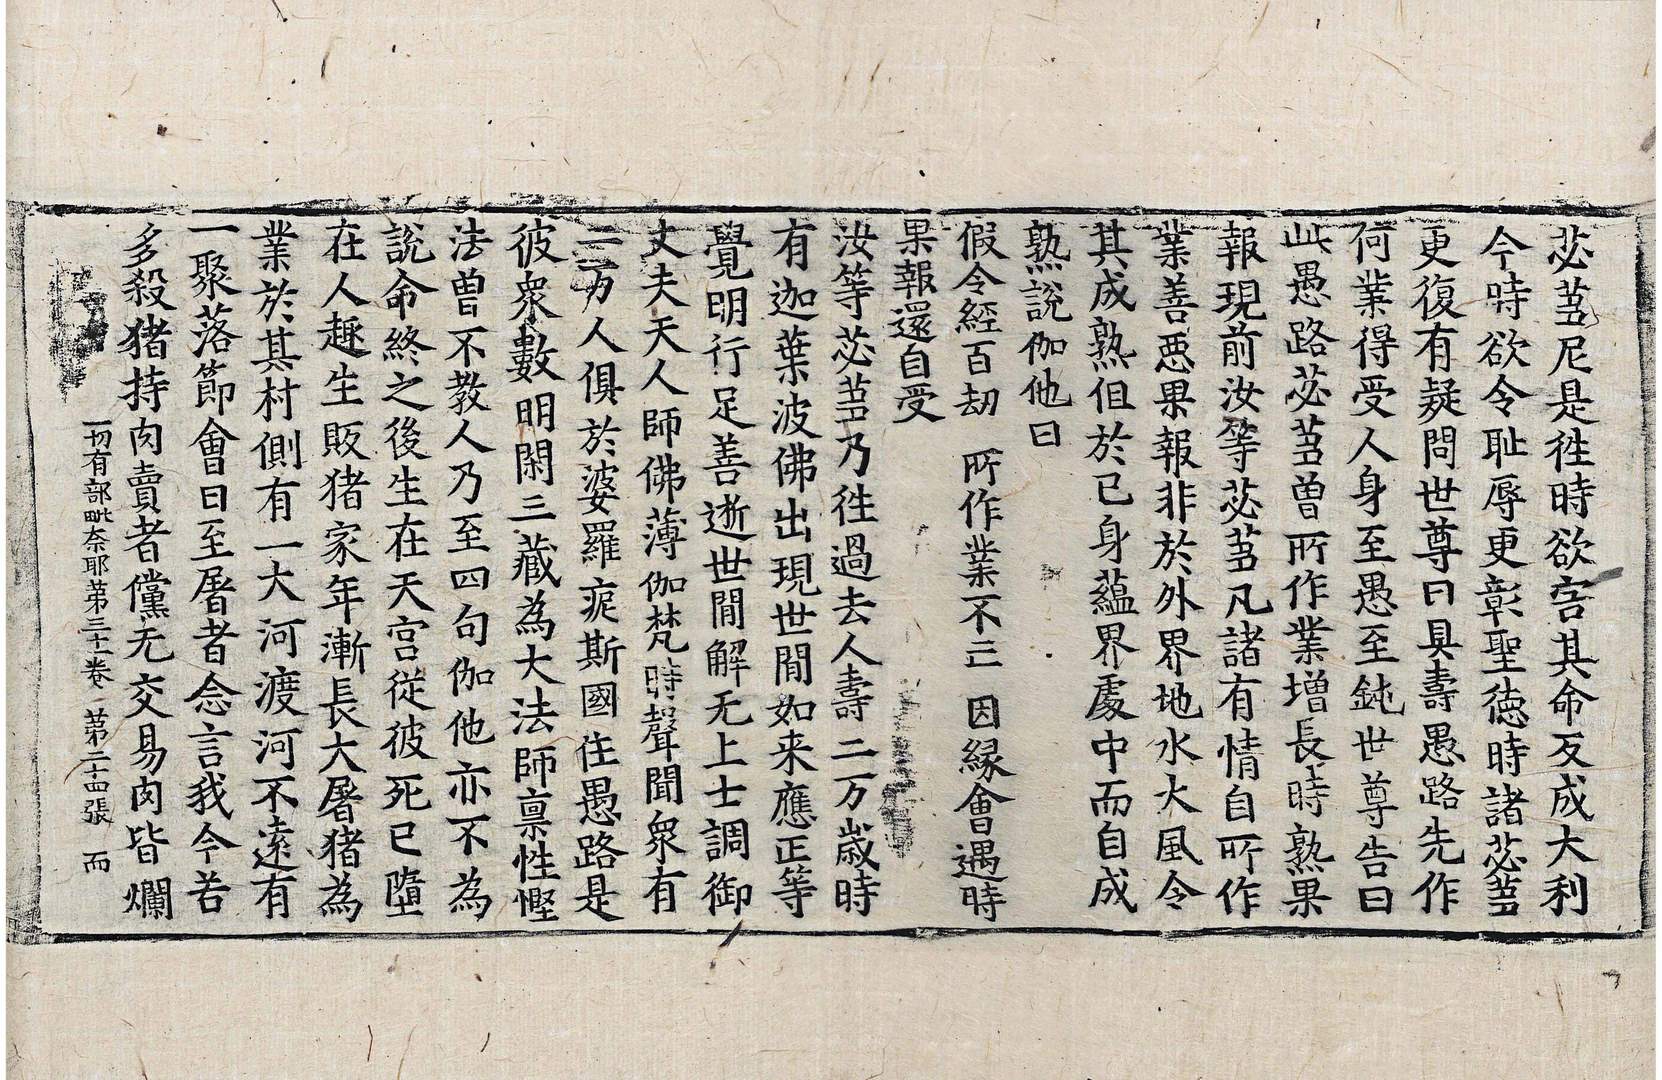 苾蒭尼是徃時欲害其命反成大利
今時欲令耻辱更彰聖徳時諸苾蒭
更復有疑問世尊曰具壽愚路先作
何業得受人身至愚至鈍世尊告曰
此愚路苾蒭曽所作業増長時熟果
報現前汝等苾蒭凡諸有情自所作
業善惡果報非於外界地水火風令
其成熟但於已身蘊界處中而自成
熟說伽他曰
假令經百劫 所作業不亡 因縁會遇時
果報還自受
汝等苾蒭乃徃過去人壽二万歲時
有迦葉波佛出現世閒如来應正等
覺明行足善逝世閒解无上士調御
丈夫天人師佛薄伽梵時聲聞衆有
二万人俱於婆羅痆斯國住愚路是
彼衆數明閑三藏為大法師禀性慳
法曽不教人乃至四句伽他亦不為
說命終之後生在天宫從彼死已墮
在人趣生販猪家年漸長大屠猪為
業於其村側有一大河渡河不遠有
一聚落節會日至屠者念言我今若
多殺猪持肉賣者儻无交易肉皆爛
一切有部毗奈耶第三十一卷 第二十四張 而